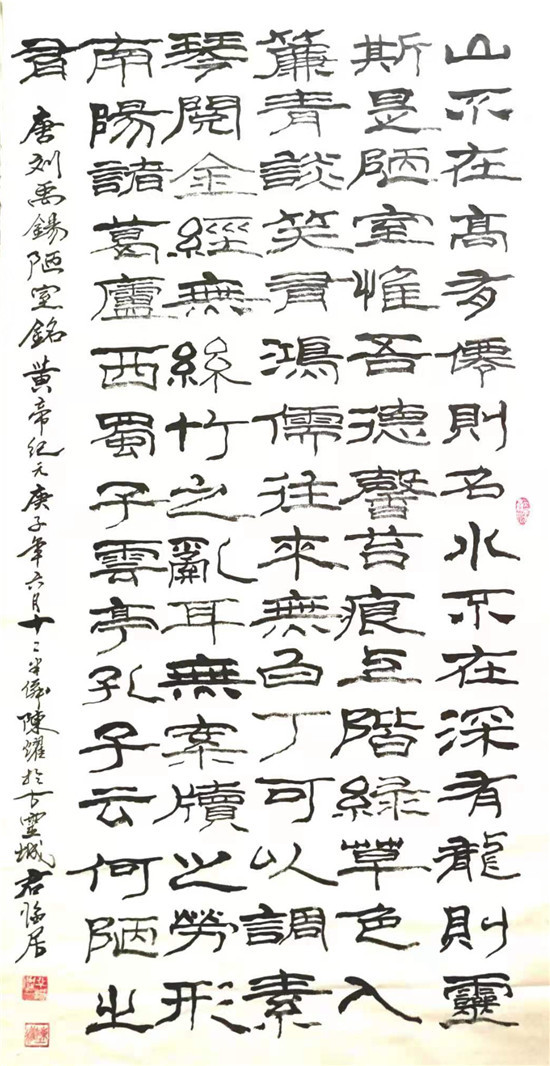 山不在高有僊則名水不在深有龍則靈
斯是陋室惟吾德馨苔痕上階綠草色入
簾青談笑有鴻儒往來無白丁可以調素
琴閱金經無絲竹之亂耳無案牘之勞形
南陽諸葛廬西蜀子雲亭孔子云何陋之
有
唐刘禹錫陋室銘黄帝纪元庚子年六月十二半儒陳燿於古靈城君临居